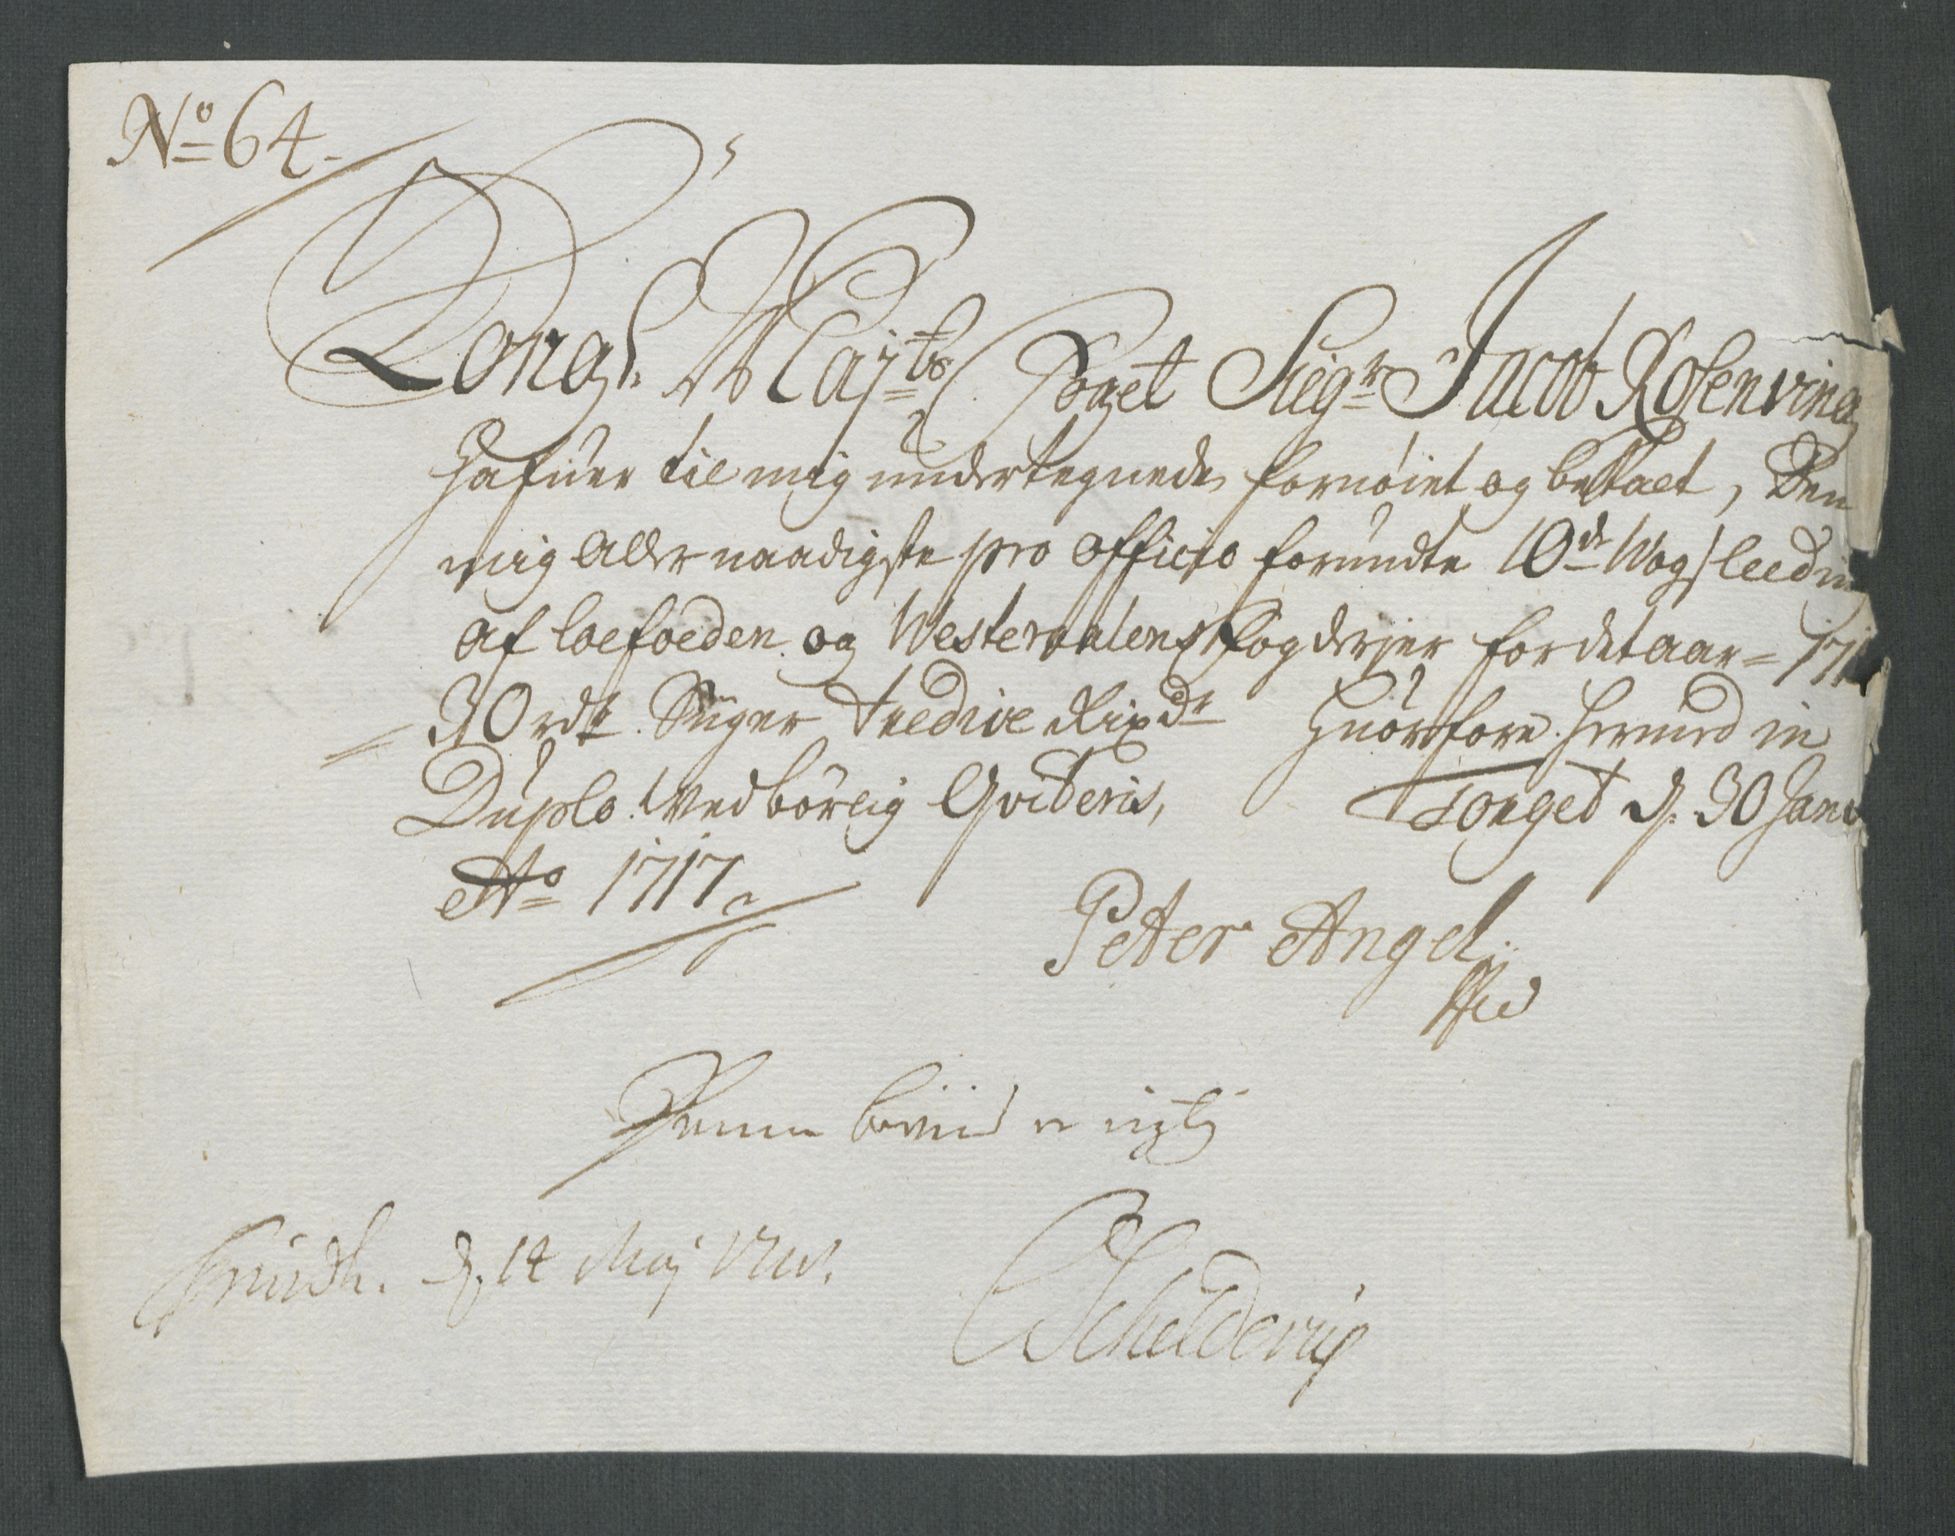 No 64.
Kongl. Mayts Foget Sigr Jacob Rosenving
hafuer til mig undertegnede fornøiet og betalt, Den
mig Allernaadigste pro officio forundte 10de Wog leedi
af loefoeden og Westeraalens fogderier for det aar 171
30 rdr Siger tredive Rixdr Huorfore hermed in
Duplo Wedbørlig Qviteris, Torget d. 30 Janu
Ao 1717
Peter Angel
Denne beviis er rigtig
Trundh. d. 14 Maj
Schelderup